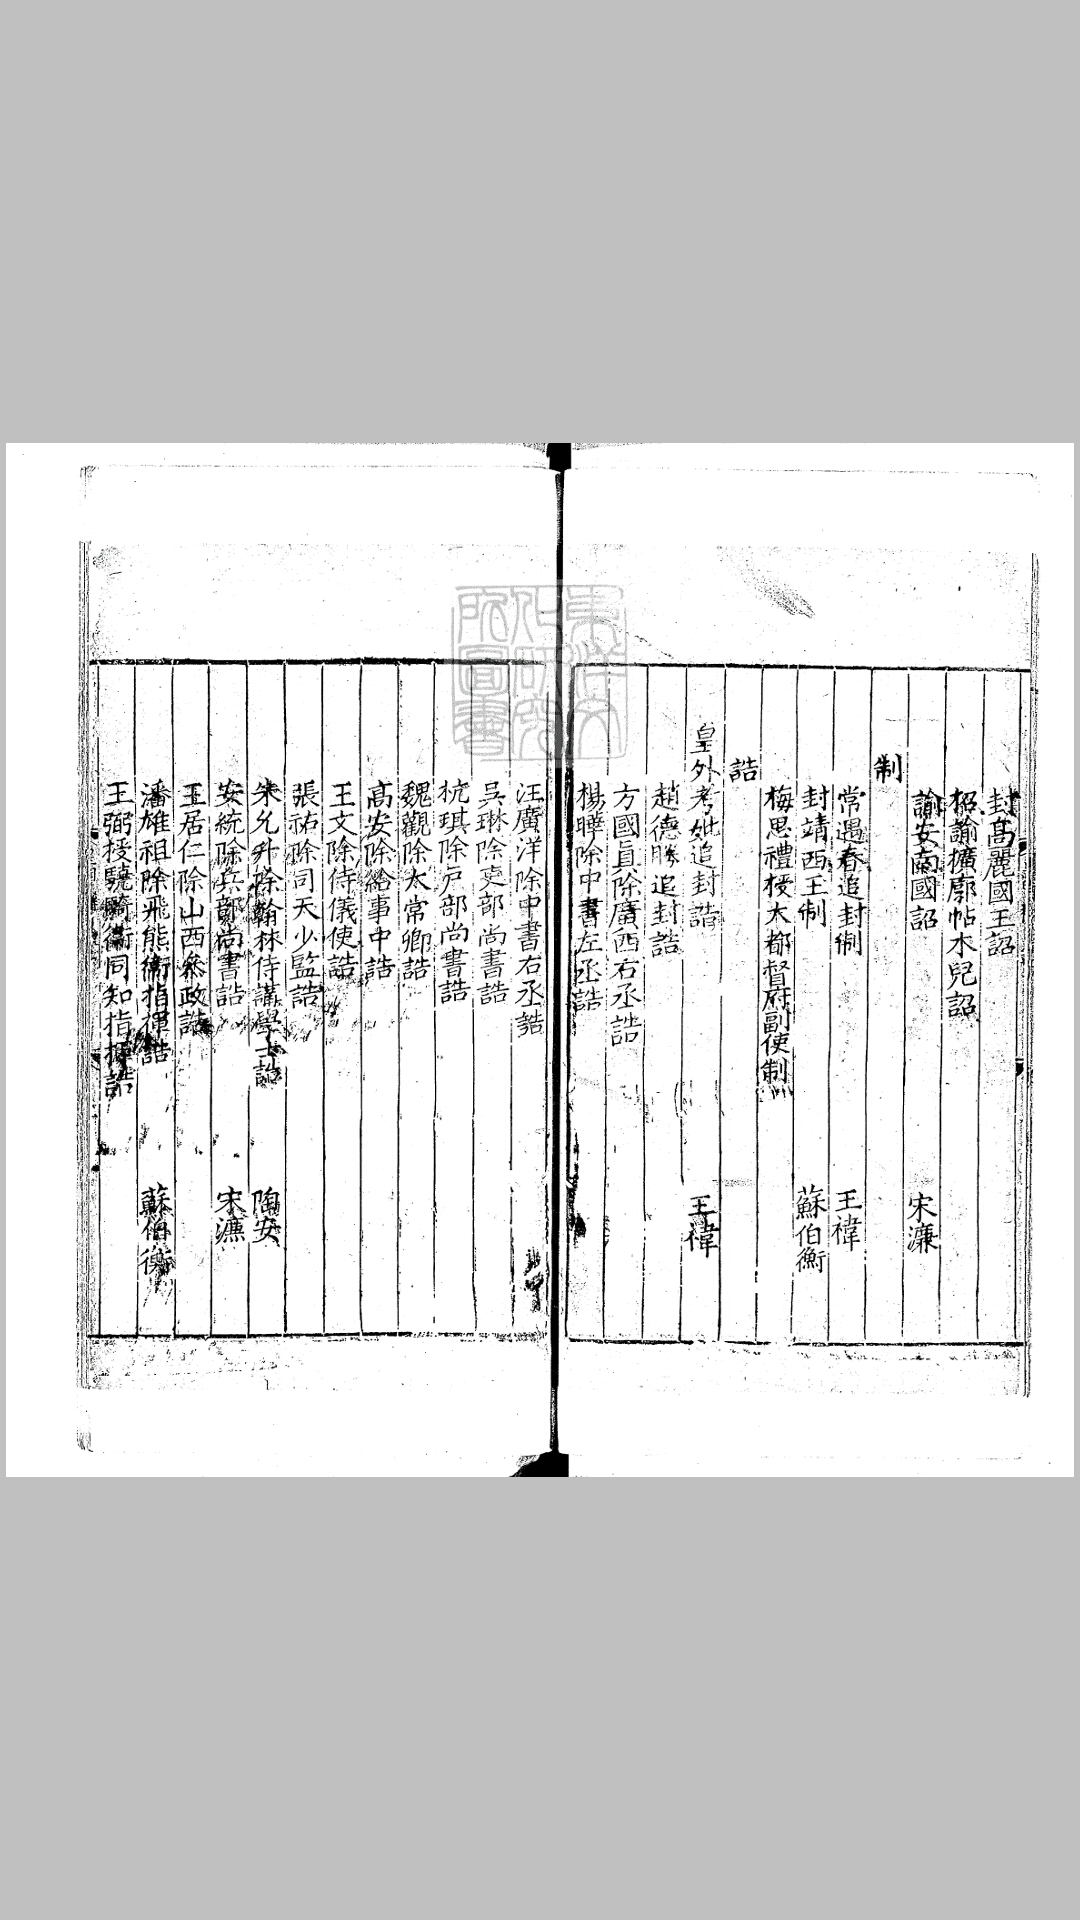 封高麗國王詔
招諭擴廓帖木兒詔
諭安南國詔 宋濂
制
常遇春追封制 王禕
封靖西王制 蘇伯衡
梅思禮授大都督府副使制
誥
皇外考妣追封誥 王禕
趙德勝追封誥
方國眞除廣西右丞誥
楊曄除中書左丞誥
汪廣洋除中書右丞誥
吳琳除吏部尚書誥
杭琪除戸部尚書誥
魏觀除太常卿誥
高安除給事中誥
王文除侍儀使誥
張祐除司天少監誥
朱允升除翰林侍講學士誥 陶安
安統除兵部尚書誥 宋濂
王居仁除山西叅政誥
潘雄祖除飛熊衞指揮誥 蘇伯衡
王弼授驍騎衞同知指揮誥
東洋文化研究所圖書